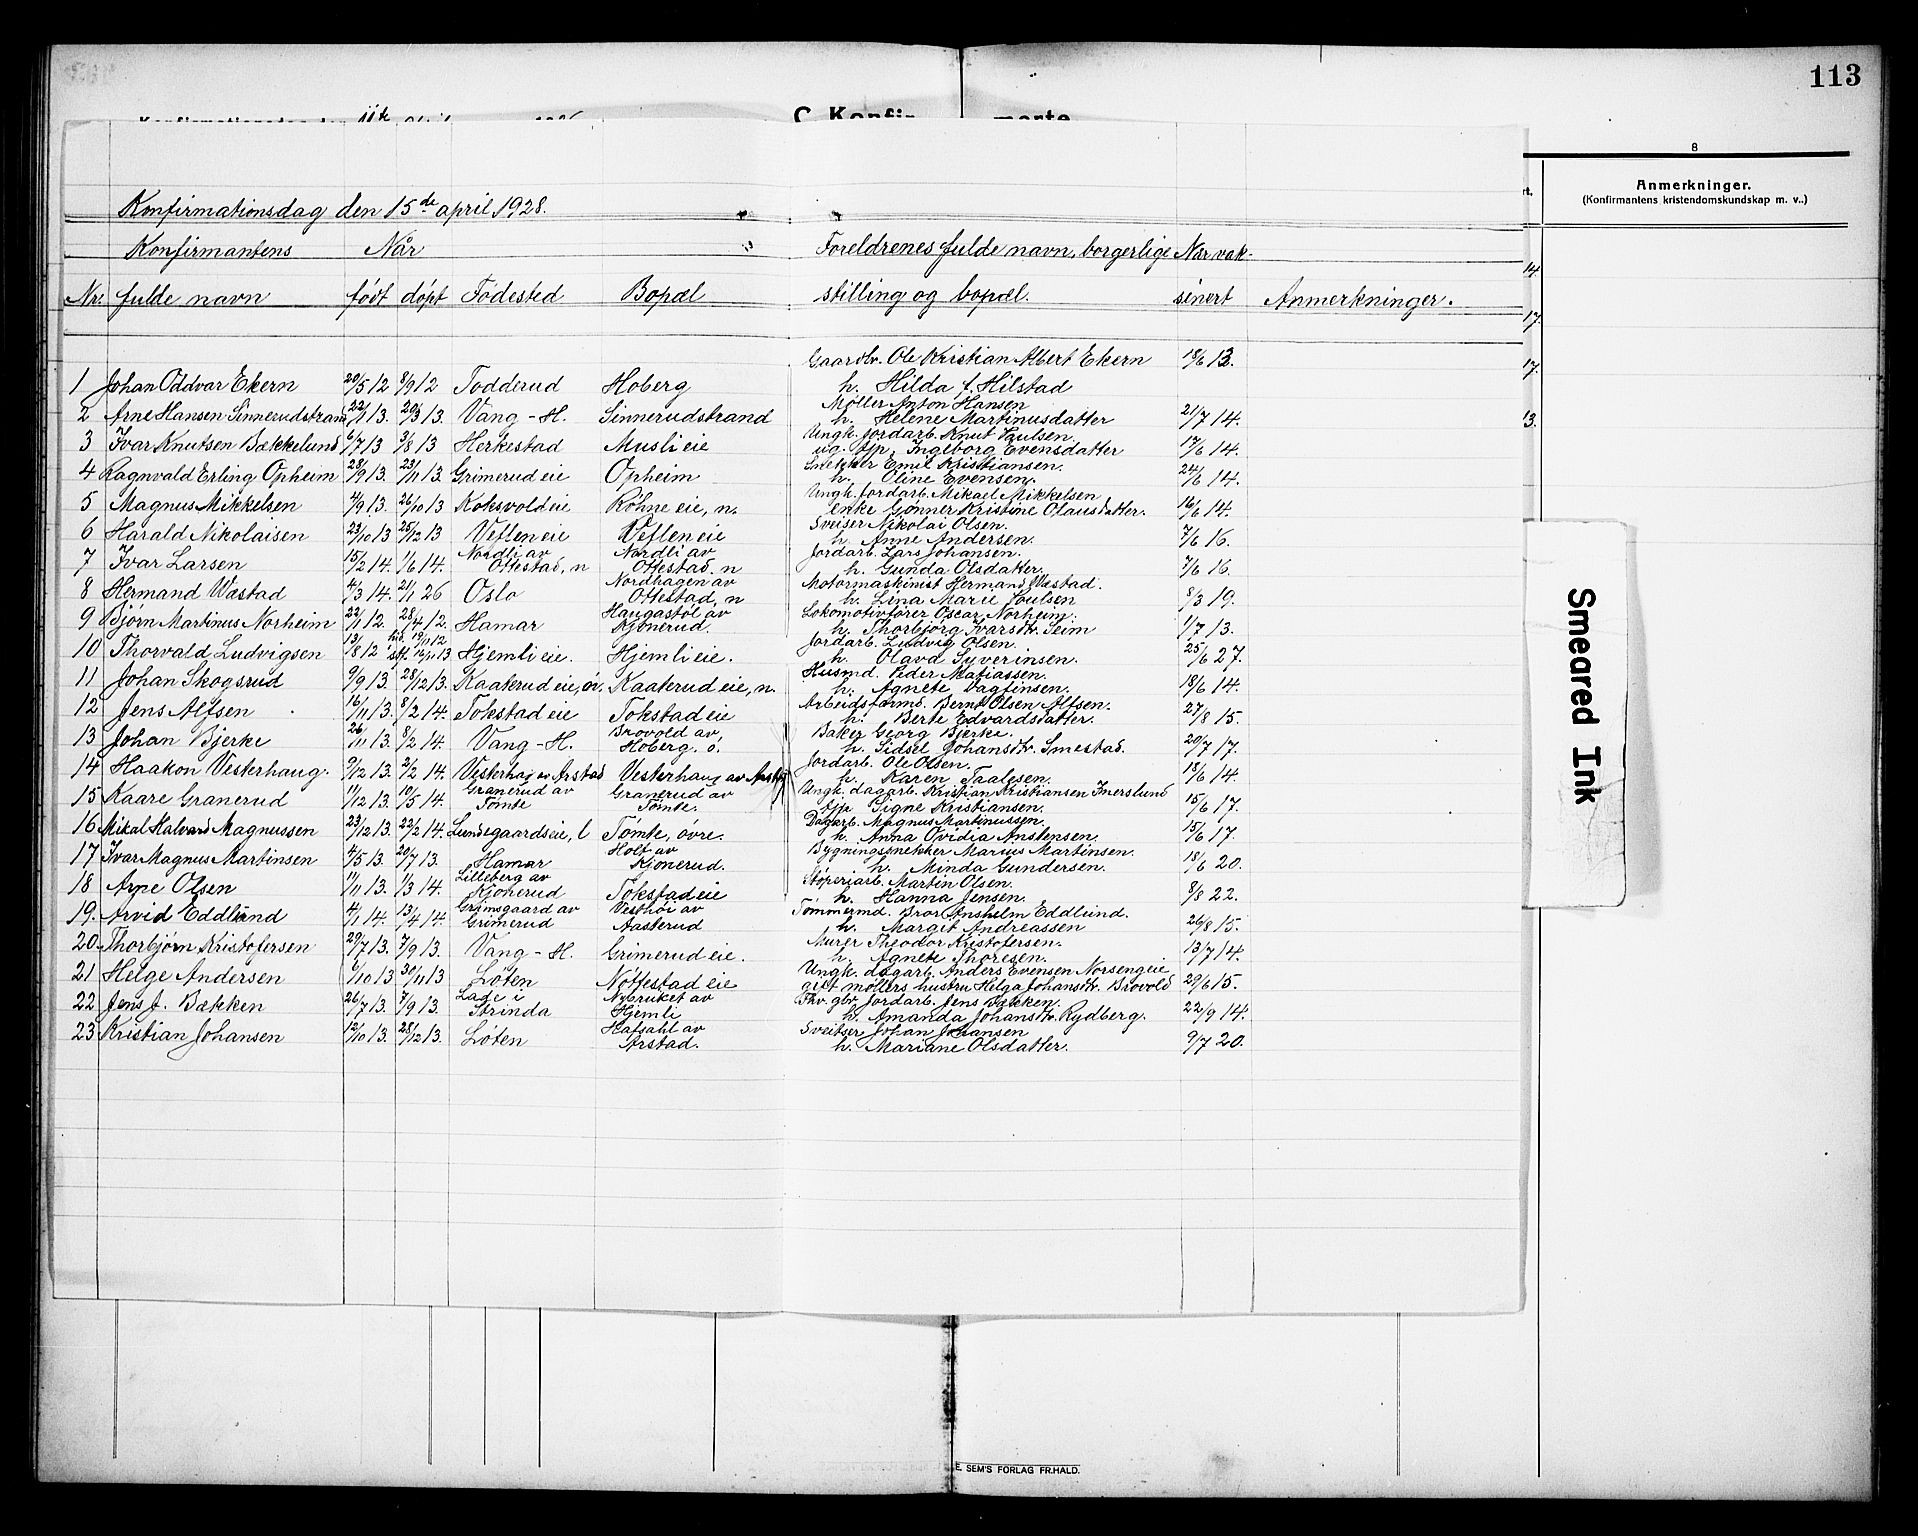 113
C. Konfir merte
8
Anmerkninger.
(Konfirmantens kristendomskundskap m. v..)
Konfirmationsdag den 15de april 1928.
Konfirmantens Når Foreldrenes fulde navn, borgerlige Når vak-
Nr. fulde navn født døpt Fødested Bopæl stilling og bopæl. sinert Anmerkninger.
Gaardbr. Ole Kristian Albert Ekern 18/6 13.
1 Johan Oddvar Ekern 20/5 12 8/9 12 Todderud Hoberg h. Hilda f. Hilstad
Møller Anton Hansen
2 Arne Hansen Sinnerudstrand 22/1 13. 20/3 13. Vang-H. Sinnerudstrand h. Helene Martinusdatter 21/7 14.
Ungk. Jordarb. Knut Paulsen.
3 Ivar Knutsen Bækkelund 6/7 13 3/8 13 Herkestad Musli eie ug. tjp. Ingeborg Evensdatter 17/6 14.
Snekker Emil Kristiansen.
4 Ragnvald Erling Opheim 28/9 13. 23/11 13. Grimerud eie Opheim h. Oline Evensen. 24/6 14.
Ungk. Jordarb. Mikael Mikkelsen
5 Magnus Mikkelsen 4/9 13. 26/10 13 Koksvold eie Røhne eie, n. enke Gønner Kristine Olausdatter. 16/6 14.
Sveiser Nikolai Olsen.
6 Harald Nikolaisen 23/10 13 25/12 13 Veflen eie Veflen eie h. Anne Andersen. 7/6 16.
Nordli av Nordli av Jordarb. Lars Johansen.
7 Ivar Larsen 15/2 14. 1/6 14. Ottestad, n Ottestad. n h. Gunda Olsdatter. 7/6 16.
Nordhagen av Motormaskinist Hermand Wæstad.
8 Hermand Wæstad 4/3 14. 21/1 26 Oslo Ottestad, n h. Lina Marie Poulsen 8/3 19.
Haugastøl av Lokomotivfører Oscar Norheim.
9 Bjørn Martinus Norheim 22/1 12. 28/4 12. Hamar Kjonerud. h. Thorbjørg Ivarsdtr. Seim 1/7 13.
hd. 19/11 12 Jordarb. Ludvig Olsen.
10 Thorvald Ludvigsen 13/8 12 stf. 16/11 13 Hjemli eie. Hjemli eie. h. Olava Syverinsen. 25/6 27.
Husmd. Peder Matiassen.
11 Johan Skogsrud 9/9 13. 28/12 13. Kaaterud eie, ön. Kaaterud eie, n. h. Agnete Dagfinsen. 18/6 14.
Arbeidsform. Bernt Olsen Alfsen.
12 Jens Alfsen 16/11 13. 8/2 14. Tokstad eie Tokstad eie h. Berte Edvardsdatter. 27/8 15.
Brovold av, Baker Georg Bjerke.
13 Johan Bjerke 26/11 13. 8/2 14. Vang-H. Hoberg. ö. h. Sidsel Johansdtr. Smestad. 20/7 17.
Jordarb. Ole Olsen.
14 Haakon Vesterhaug. 9/12 13. 2/2 14. Vesterhaug av Arstad Vesterhaug av Arstad h. Karen Taalesen. 18/6 14.
Granerud av Granerud av Ungk. dagarb. Kristian Kristiansen Inerslund
15 Kaare Granerud 11/12 13. 10/5 14. Tömte Tömte. tjp. Signe Kristiansen. 15/6 17.
Dagarb. Magnus Martinussen.
16 Mikal Halvard Magnussen 23/12 13. 22/2 14. Lundsgaardseie, l Tömte, övre. h. Anna Ovidia Anstensen. 15/6 17.
Holt av Bygningssnekker Marius Martinsen.
17 Ivar Magnus Martinsen 4/5 13. 20/7 13. Hamar Kjonerud. h. Minda Gundersen. 18/6 20.
Lilleberg av Støperiarb. Martin Olsen.
18 Arne Olsen 11/11 13. 1/3 14. Kjonerud Tokstad eie h. Hanna Jensen. 8/8 22.
Grimsgaard av Vesthöi av Tömmermd. Bror Anshelm Eddlund.
19. Arvid Eddlund 4/1 14. 13/4 14. Grimerud Aasterud h. Margit Andreassen 26/8 15.
Murer Theodor Kristofersen.
20 Thorbjørn Kristofersen 29/7 13. 7/9 13. Vang-H. Grimerud eie. h. Agnete Thoresen. 13/7 14.
Ungk. dagarb. Anders Evensen Norsengeie
21 Helge Andersen 6/10 13 30/11 13 Løten Nøttestad eie gift møllers hustru Helga Johansdtr. Brovold 29/6 15.
Lade i Nybruket av Fhv. gbr. Jordarb. Jens Bækken.
22 Jens J. Bækken 26/7 13. 7/9 13. Strinda Hjemli h. Amanda Johansdtr. Rydberg. 22/9 14.
Hafsahl av Sveitser Johan Johansen
23 Kristian Johansen 12/10 13. 28/12 13. Løten Arstad. h. Mariane Olsdatter. 9/7 20.
14.
17.
17.
13.
Smeared Ink
E. SEM'S FORLAG FR.HALD.